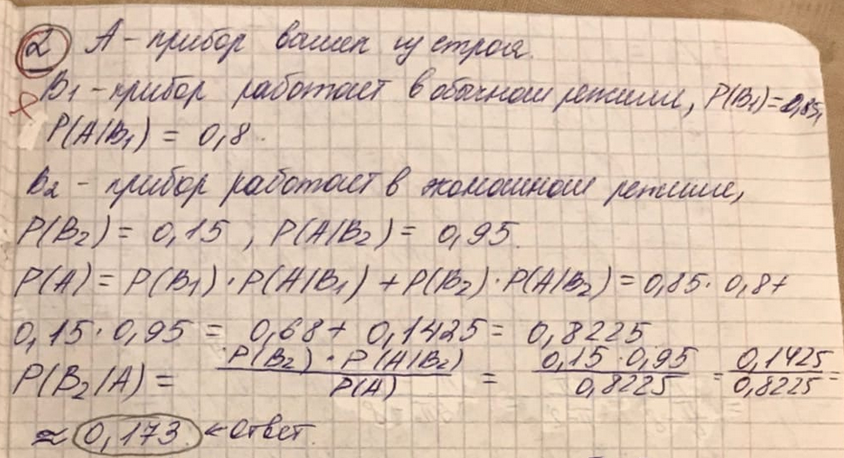 2 А - прибор вышел из строя.
В1 - прибор работает в обычном режиме, P(B1) = 0,85,
P(A/B1) = 0,8.
В2 - прибор работает в экономном режиме,
P(B2) = 0,15, P(A/B2) = 0,95.
P(A) = P(B1) · P(A/B1) + P(B2) · P(A/B2) = 0,85 · 0,8 +
0,15 · 0,95 = 0,68 + 0,1425 = 0,8225
P(B2/A) = P(B2) · P(A/B2) / P(A) = 0,15 · 0,95 / 0,8225 = 0,1425 / 0,8225 =
≈ 0,173. ← ответ.